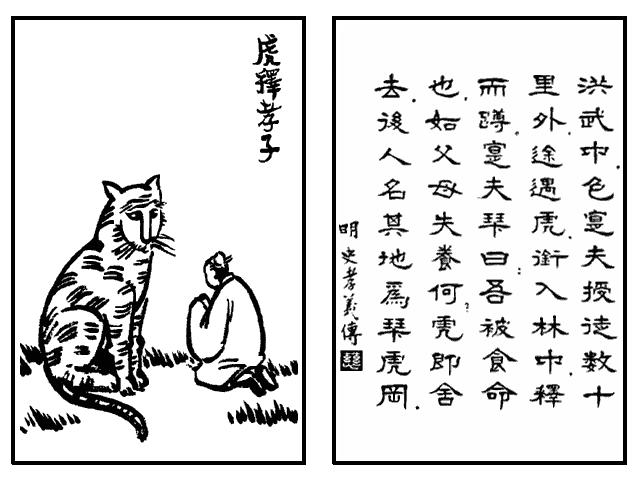 虎釋孝子
洪武中.包寔夫授徒数十
里外.途遇虎.銜入林中.釋
而蹲.寔夫拜曰:吾被食命
也.如父母失養何?虎即舍
去.後人名其地爲拜虎岡.
明史孝義傳